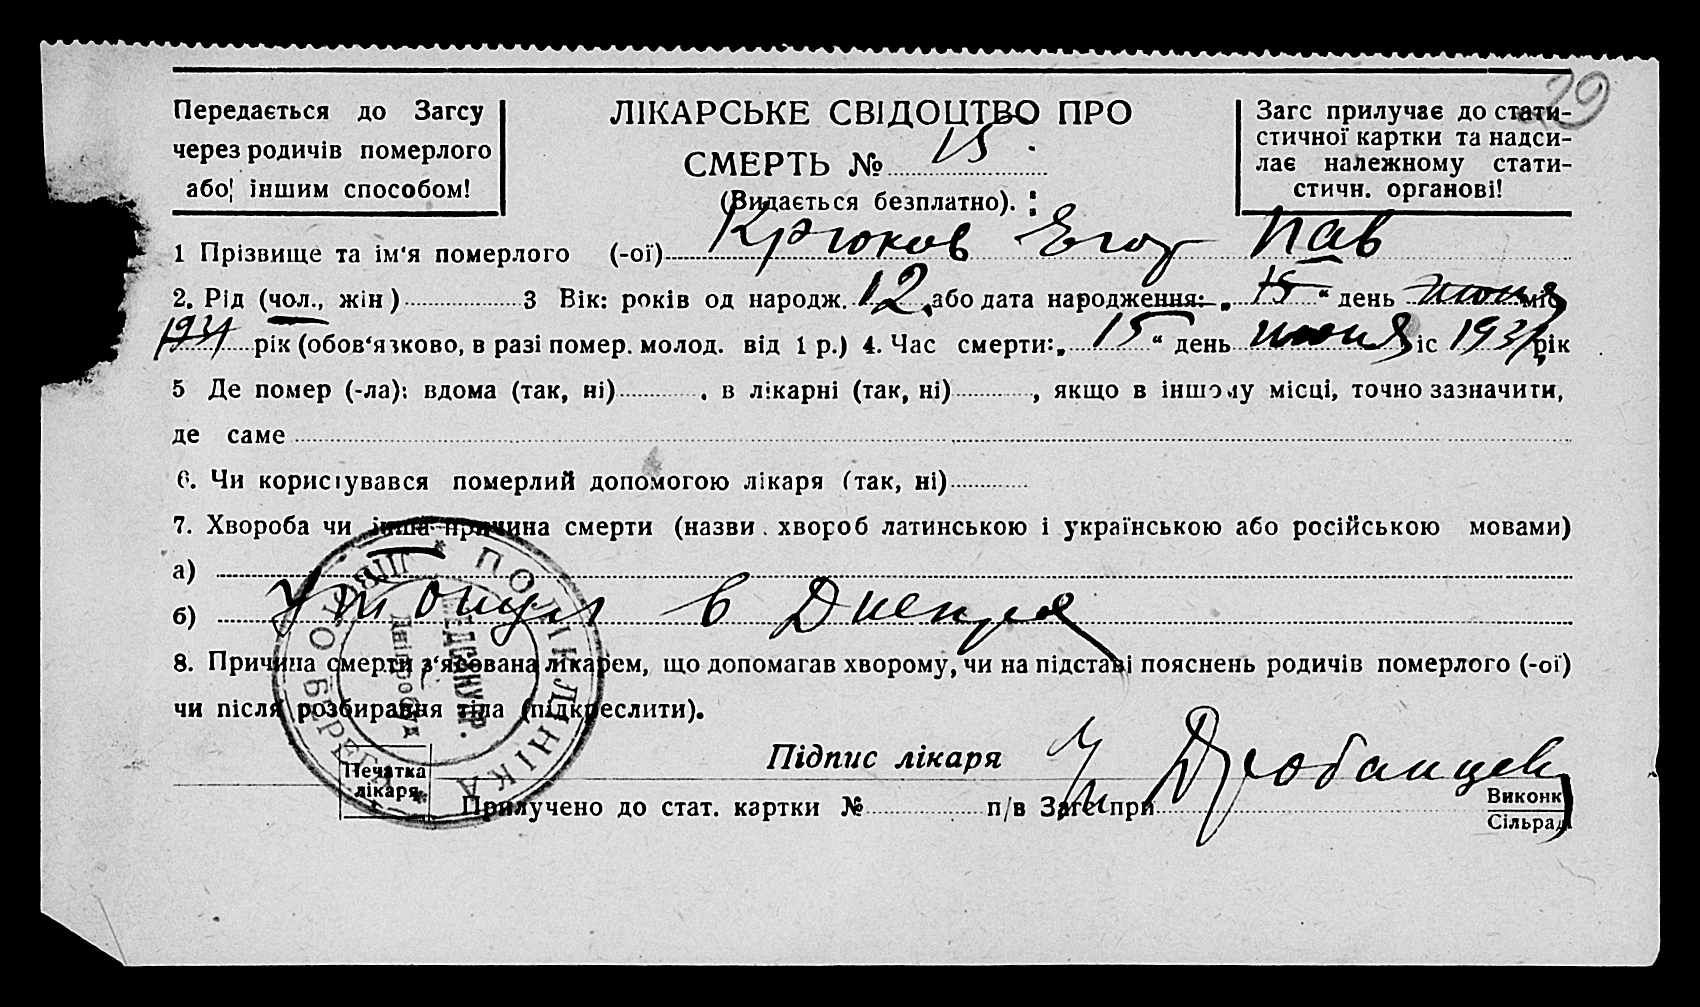 29
Передається до Загсу
через родичів померлого
або іншим способом!
ЛІКАРСЬКЕ СВІДОЦТВО ПРО
СМЕРТЬ № 15
(Видається безплатно).
Загс прилучає до стати-
стичної картки та надси-
лає належному стати-
стичн. органові!
1 Прізвище та ім'я померлого (-ої) Крюков Егор Пав
2. Рід (чол., жін) 3 Вік: років од народж. 12 або дата народження: „15“ день июня міс
1931 рік (обов'язково, в разі помер. молод. від 1 р.) 4. Час смерти: „15“ день июня міс 1931 рік
5 Де помер (-ла): вдома (так, ні) , в лікарні (так, ні) , якщо в іншому місці, точно зазначити,
де саме
6. Чи користувався померлий допомогою лікаря (так, ні)
7. Хвороба чи інша причина смерти (назви хвороб латинською і українською або російською мовами)
а)
б) Утонул в Днепре
8. Причина смерти з'ясована лікарем, що допомагав хворому, чи на підставі пояснень родичів померлого (-ої)
чи після розбирання тіла (підкреслити).
Підпис лікаря
Печатка
лікаря
Прилучено до стат. картки № п/в Загс при
Виконк
Сільрад
ПОЛІКЛІНІКА
Дніпробуд